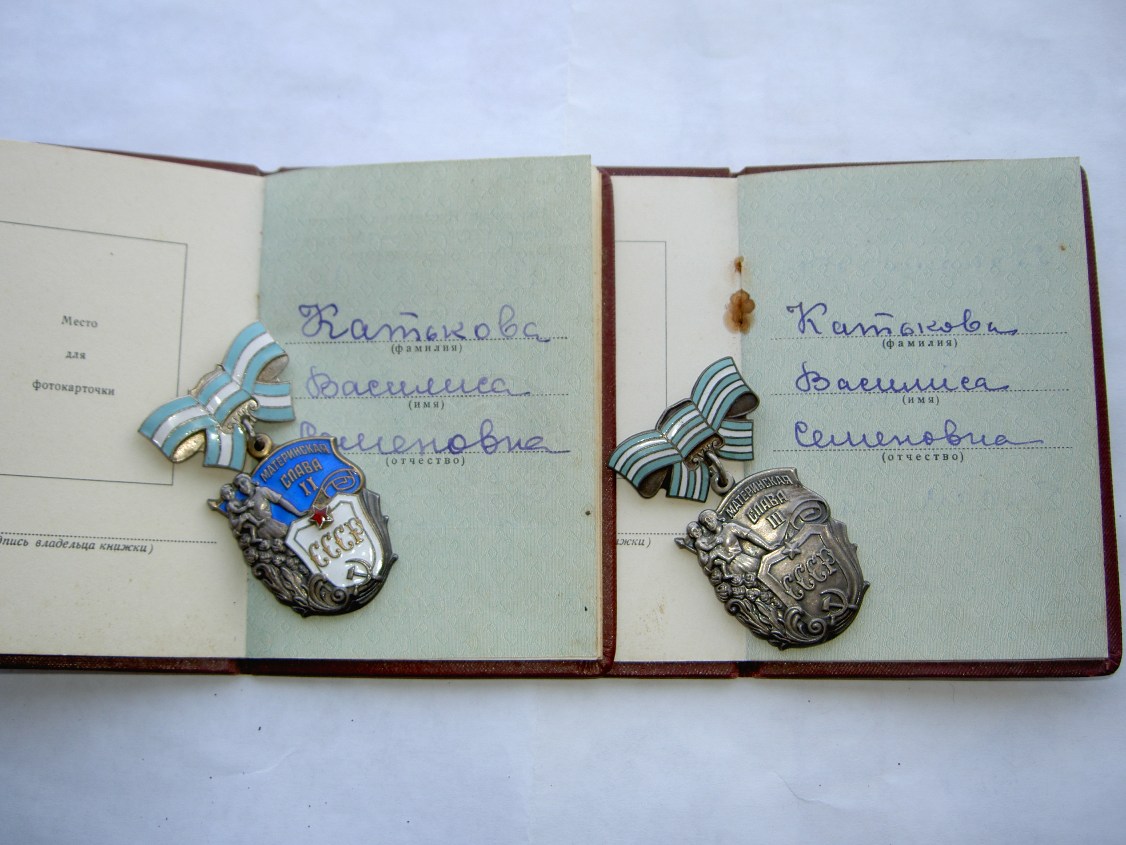 Место
для
фотокарточки
дпись владельца книжки)
Катькова
(фамилия)
Василиса
(имя)
Семеновна
(отчество)
МАТЕРИНСКАЯ
СЛАВА
II
СССР
жки)
Катькова
(фамилия)
Василиса
(имя)
Семеновна
(отчество)
МАТЕРИНСКАЯ
СЛАВА
III
СССР